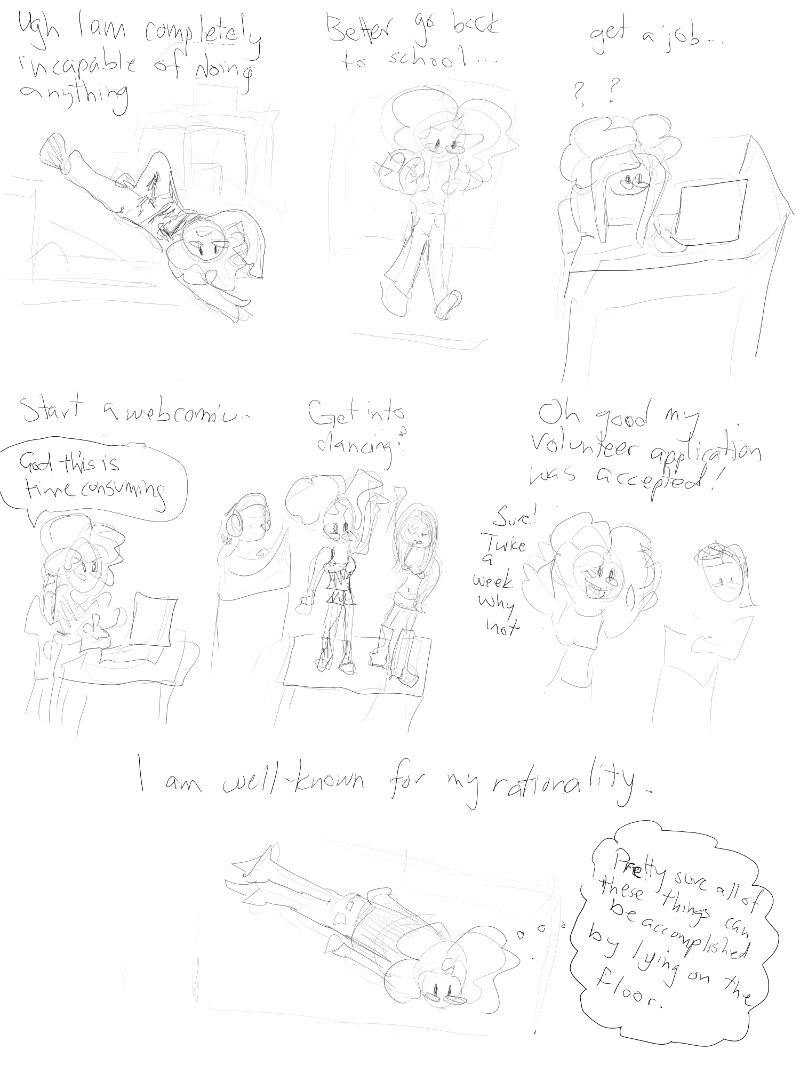 Ugh I am completely
incapable of doing
anything
Better go back
to school...
get a job...
? ?
Start a webcomic...
God this is
time consuming
Get into
dancing?
Oh good my
volunteer application
was accepted!
Sure!
Twice
a
week
why
not
I am well-known for my rationality.
Pretty sure all of
these things can
be accomplished
by lying on the
floor.